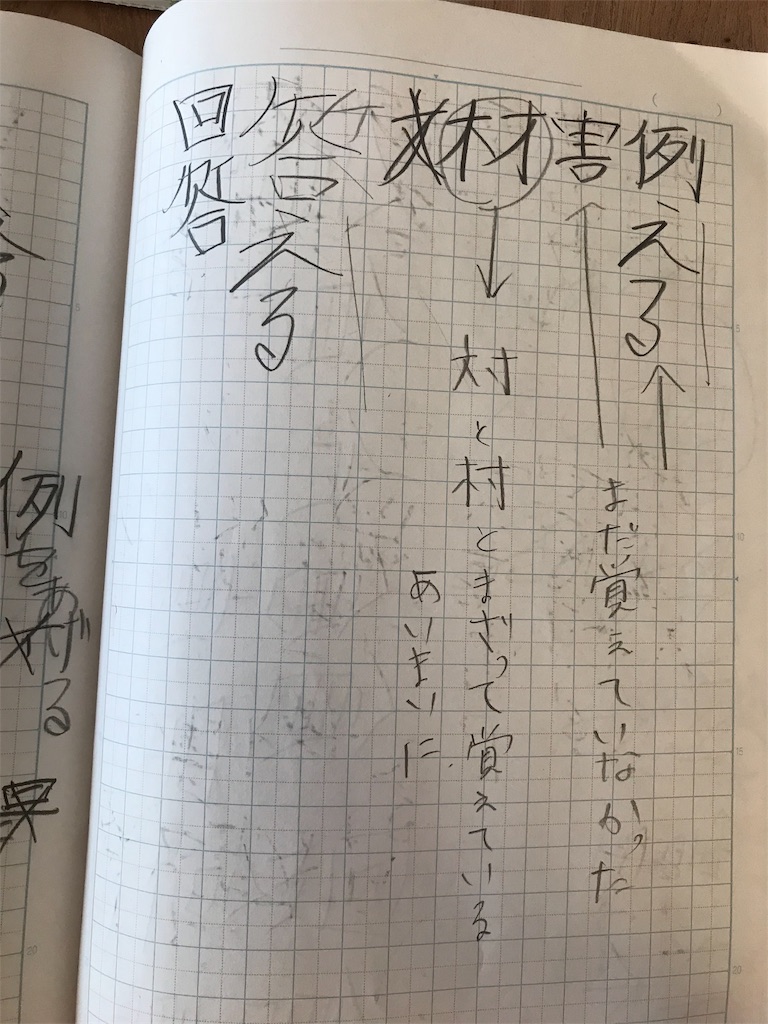 例える
害
まだ覚えていなかった
材
対と村とまざって覚えている
あいまいに
答える
回答
例をあげる